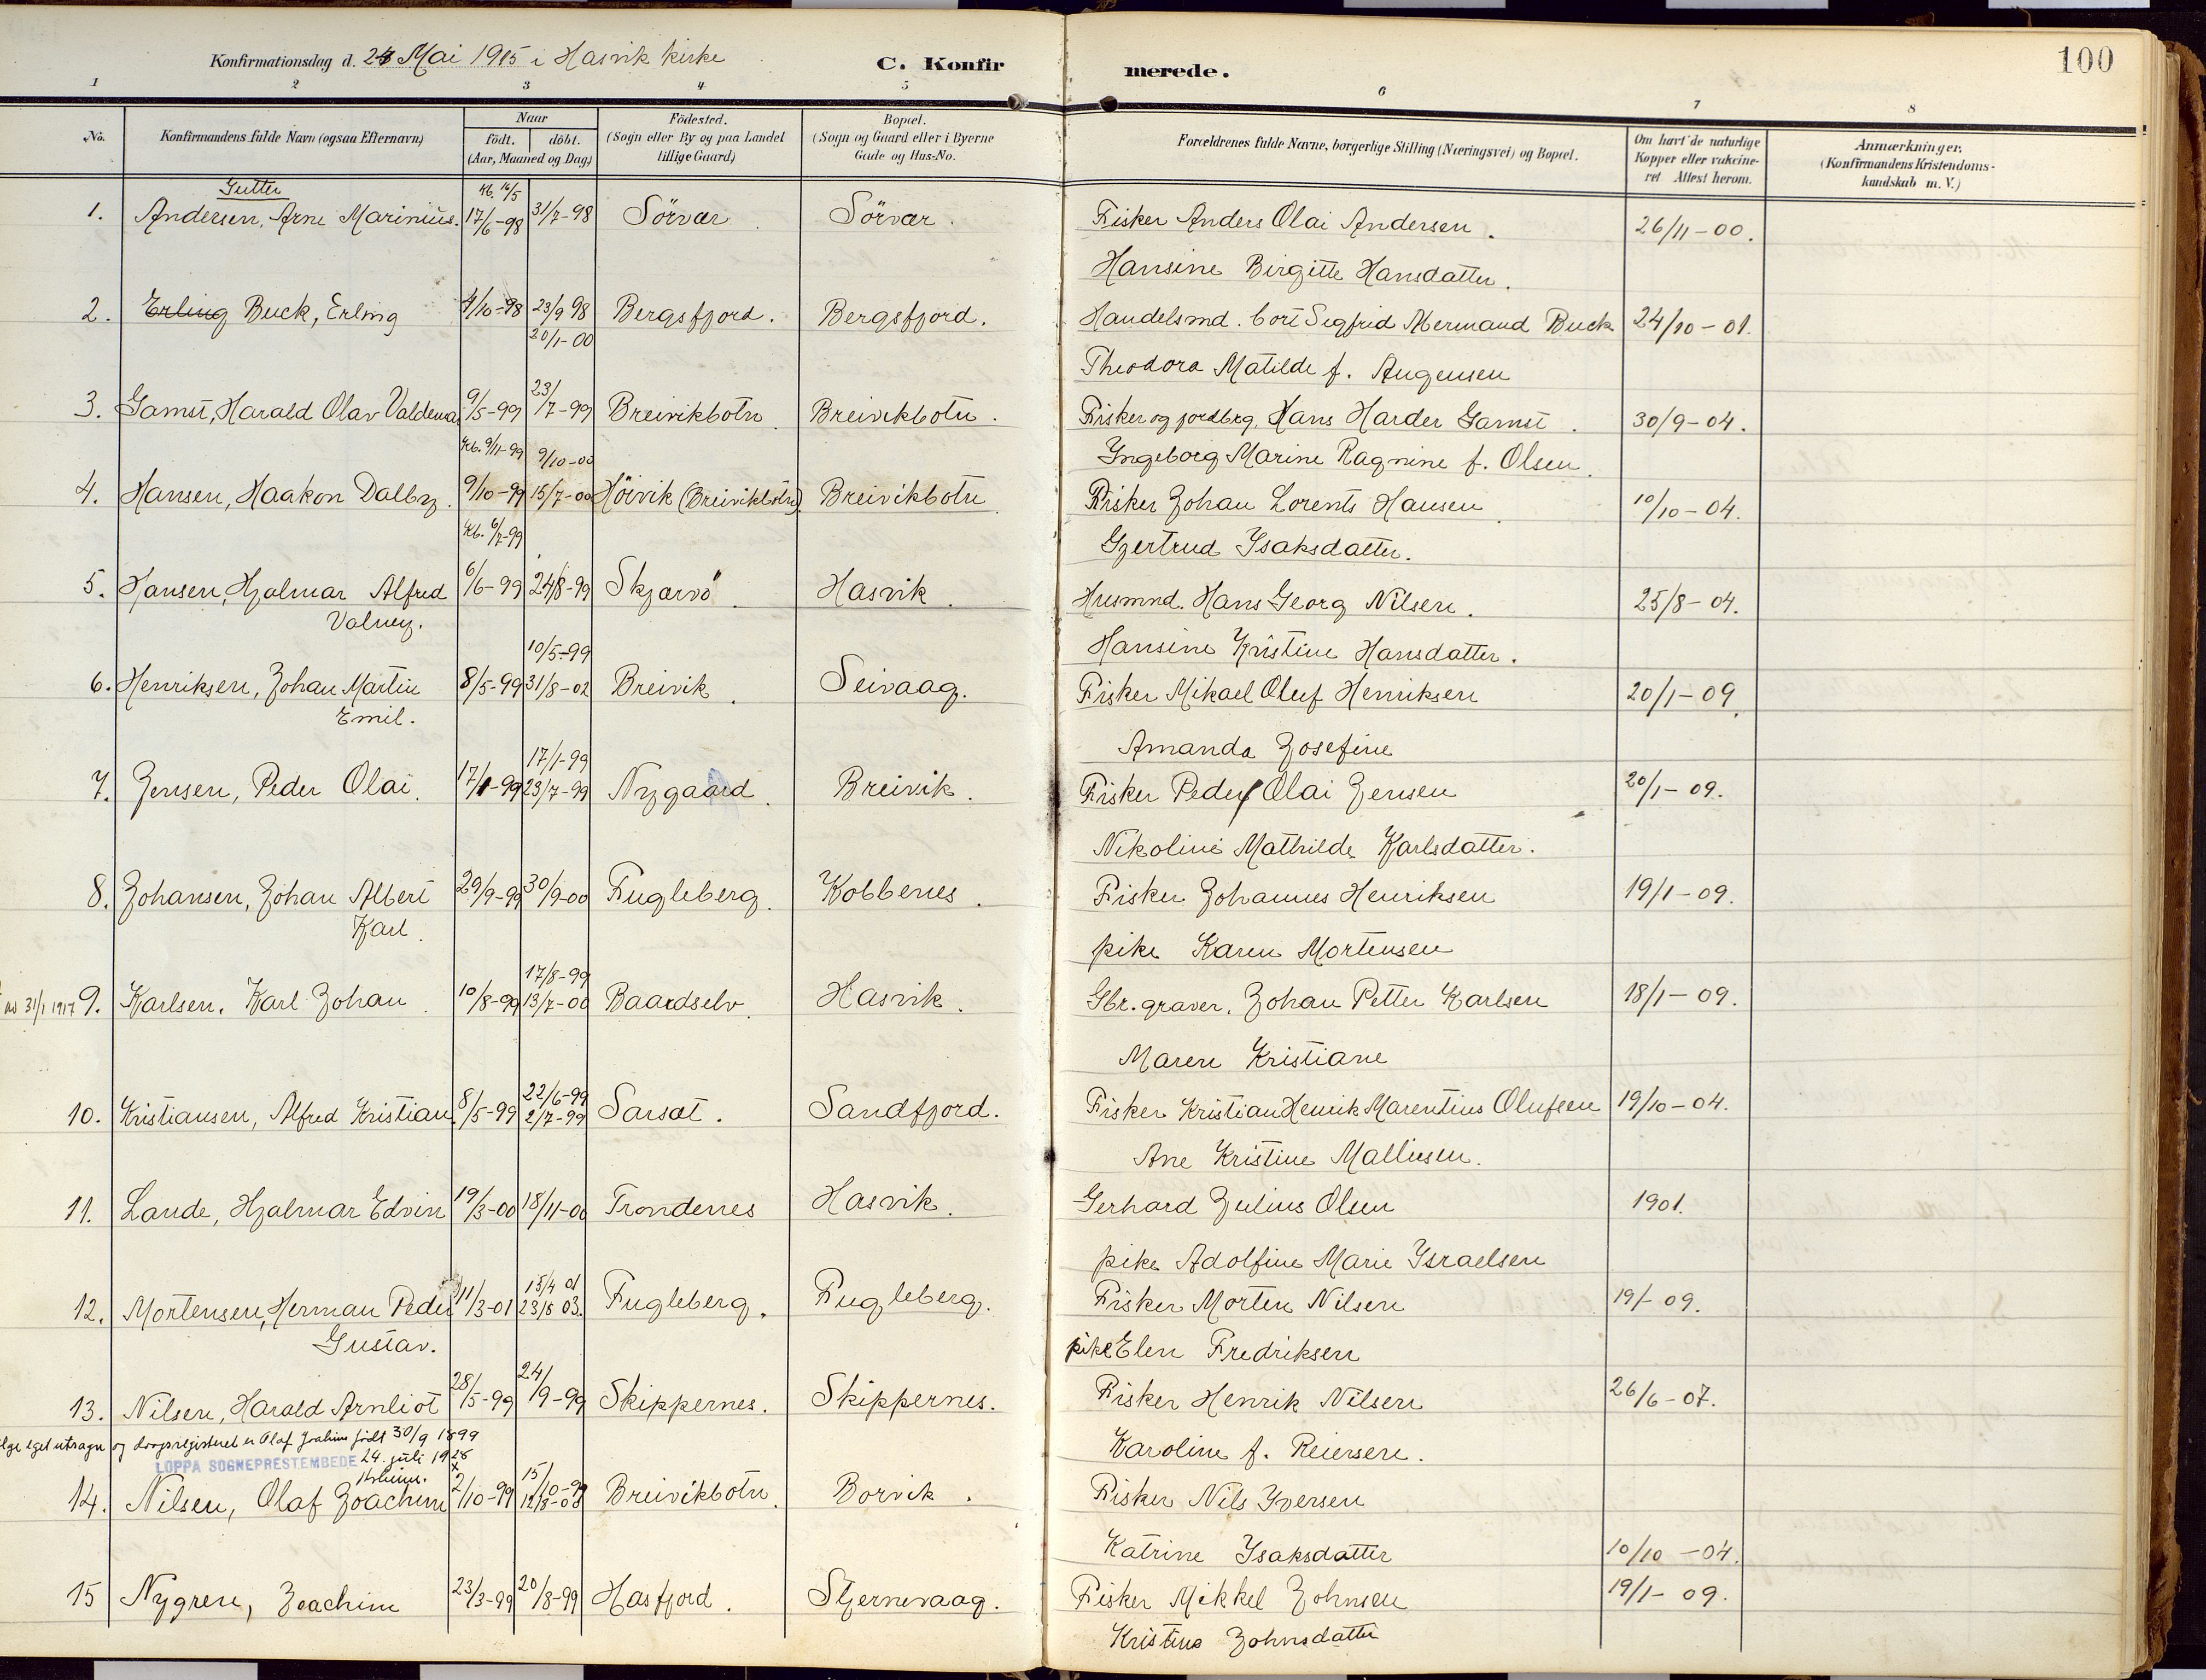 Konfirmationsdag d. 24 Mai 1915 i Hasvik kirke
C. Konfir merede.
100
1 2 3 4 5 6 7 8
No. Konfirmandens fulde Navn (ogsaa Efternavn) Naar födt. döbt. (Aar, Maaned og Dag) Födested. (Sogn eller By og paa Landet tillige Gaard) Bopæl. (Sogn og Gaard eller i Byerne Gade og Hus-No. Forældrenes fulde Navne, borgerlige Stilling (Næringsvei) og Bopæl. Om havt de naturlige Kopper eller vakcineret Attest herom. Anmærkninger. (Konfirmandens Kristendomskundskab m. V.)
Gutter
kb. 16/5
1. Andersen, Arne Marinius. 17/6-98 31/7-98 Sörvær Sörvær. Fisker Anders Olai Andersen. 26/11-00.
Hansine Birgitte Hansdatter.
2. Erling Buck, Erling 4/10-98 23/9 98 Bergsfjord. Bergsfjord. Handelsmd. Cort Segfred Mermand Buck 24/10-01.
20/1-00
Theodora Matilde f. Augensen
3. Gamst, Harald Olav Valdemar 9/5-99 23/7-99 Breivikbotn. Breivikbotn. Fisker og jordbrg. Hans Harder Gamst. 30/9-04.
Kb. 9/11-99 9/10-00
Yngeborg Marine Ragnine f. Olsen.
4. Hansen, Haakon Dalby. 9/10-99 15/7-00 Höivik (Breivikbotn). Breivikbotn. Fisker Johan Lorents Hansen. 10/10-04.
Kb. 6/7-99
Gjertrud Isaksdatter.
5. Hansen, Hjalmar Alfred 6/6-99 24/8-99 Skjærvö. Hasvik. Husmnd. Hans Georg Nilsen. 25/8-04.
Valney.
10/5-99
Hansine Kristine Hansdatter.
6. Henriksen, Johan Martin 8/5-99 31/8-02 Breivik. Seivaag. Fisker Mikael Oluf Henriksen 20/1-09.
Emil.
Amanda Josefine
17/1-99
7. Jensen, Peder Olai. 17/1-99 23/7-99 Nygaard. Breivik. Fisker Peder Olai Jensen 20/1-09.
Nikoline Mathilde Karlsdatter.
8. Johansen, Johan Albert 29/9-99 30/9-00 Fugleberg. Kobbenes. Fisker Johannes Henriksen 19/1-09.
Karl.
pike Karen Mortensen
17/8-99
31/1 1917 9. Karlsen, Karl Johan. 10/8-99 13/7-00 Baardselv. Hasvik. Gbr. graver. Johan Petter Karlsen 18/1-09.
Maren Kristiane
22/6-99
10. Kristiansen, Alfred Kristian. 8/5-99 2/7-99 Sarsat. Sandfjord. Fisker Kristian Henrik Marentius Olufsen 19/10-04.
Ane Kristine Malliesen.
11. Lande, Hjalmar Edvin 19/3-00 18/11-00 Trondenes Hasvik. Gerhard Julius Olsen 1901.
pike Adolfine Marie Israelsen
15/4 01
12. Mortensen, Herman Peder 11/3-01 23/8 03. Fugleberg. Fugleberg. Fisker Morten Nilsen 19/-09.
Gustav.
pike Elen Fredriksen
13. Nilsen, Harald Arnliot 28/5-99 24/9-99 Skippernes. Skippernes. Fisker Henrik Nilsen 26/6-07.
eget utsagn og daapsregisteret er Olaf Joakim födt 30/9 1899
LOPPA SOGNEPRESTEMBEDE 24. juli 1928
Karoline f. Reiersen.
14. Nilsen, Olaf Joachim 2/10-99 15/10-99 Breivikbotn. Borvik. Fisker Nils Iversen
12/8-03
Katrine Isaksdatter 10/10-04.
15 Nygren, Joachim 23/3-99 20/8-99 Hasfjord. Stjernvaag. Fisker Mikkel Johnsen 19/1-09.
Kristine Johnsdatter